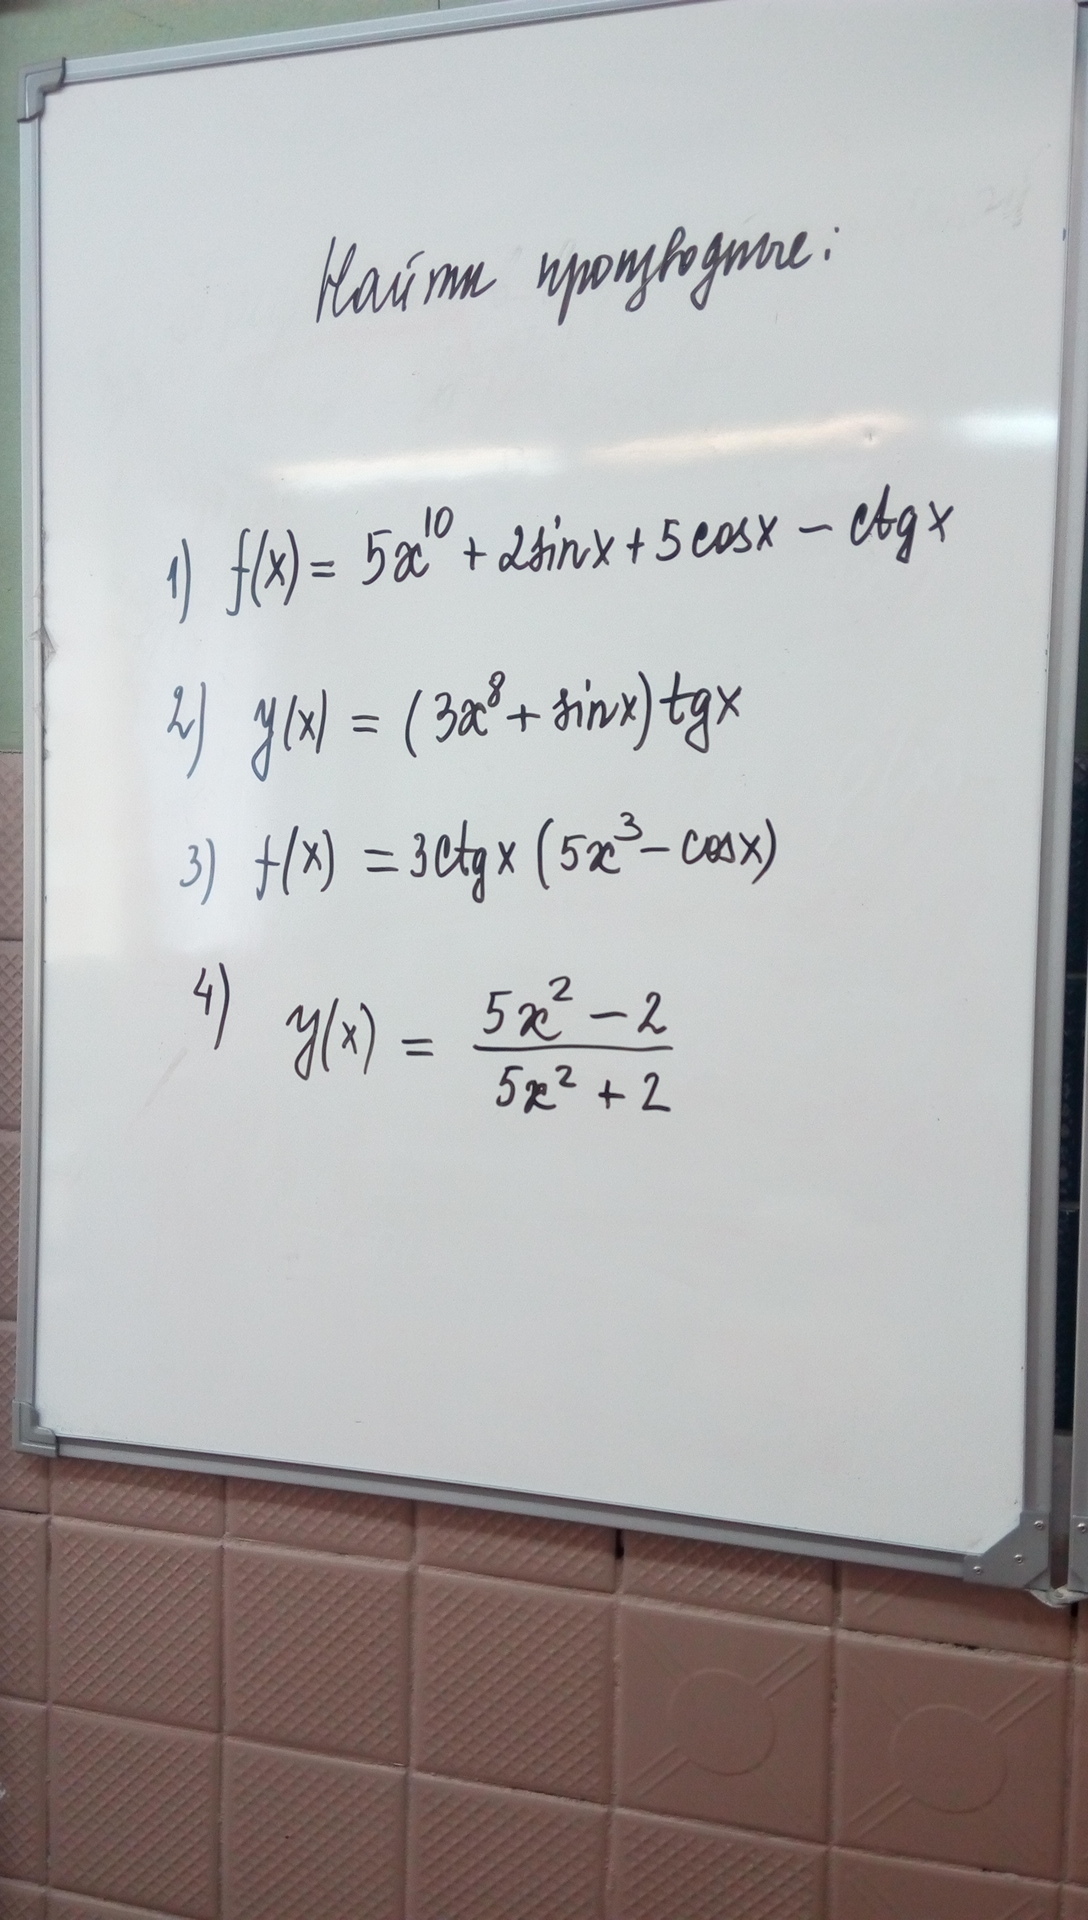 Найти производные:
1) f(x) = 5x¹⁰ + 2sinx + 5cosx − ctgx
2) y(x) = (3x⁸ + sinx) tgx
3) f(x) = 3ctgx (5x³ − cosx)
4) y(x) = (5x² − 2) / (5x² + 2)